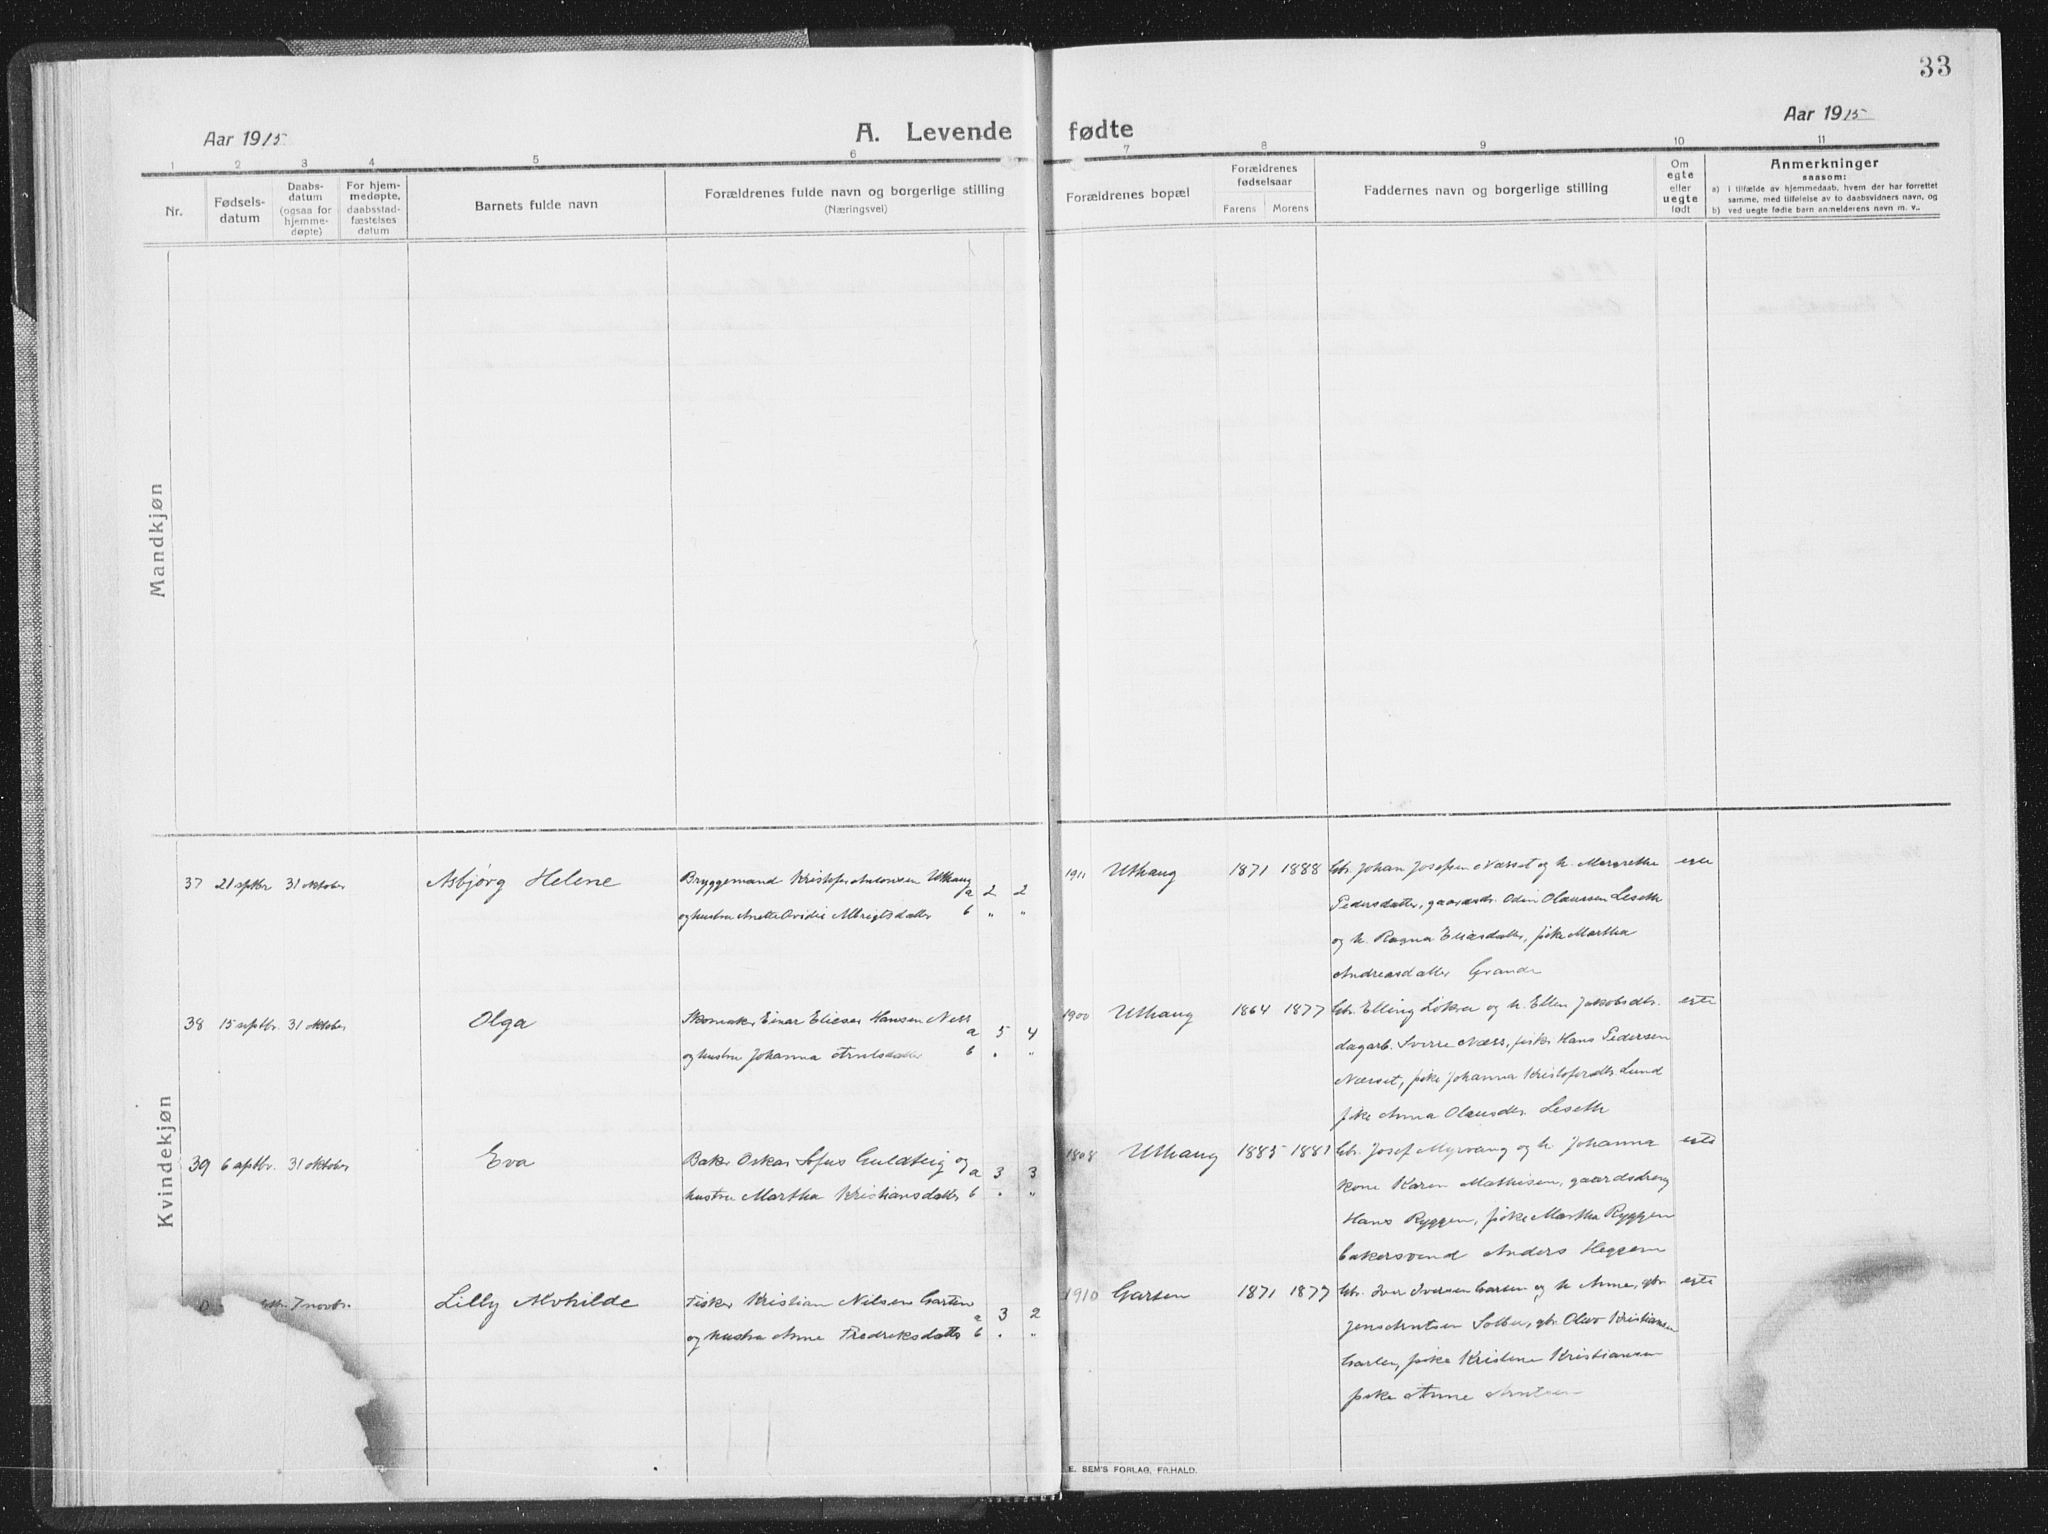 33
Aar 1915
A. Levende fødte
Aar 1915
1 2 3 4 5 6 7 8 9 10 11
Nr.
Fødsels-
datum
Daabs-
datum
(ogsaa for
hjemme-
døpte)
For hjem-
medøpte,
daabsstad-
fæstelses
datum
Barnets fulde navn
Forældrenes fulde navn og borgerlige stilling
(Næringsvei)
Forældrenes bopæl
Forældrenes
fødselsaar
Farens Morens
Faddernes navn og borgerlige stilling
Om
egte
eller
uegte
født
Anmerkninger
saasom:
a) i tilfælde av hjemmedaab, hvem der har forrettet
samme, med tilføielse av to daabsvidners navn, og
b) ved uegte fødte barn anmelderens navn m. v..
Mandkjøn
Kvindekjøn
37 21 septbr 31 oktober Asbjørg Helene Bryggemand Kristofer Antonsen Uthaug a 2 2 1911 Uthaug 1871 1888 Gbr. Johan Josefsen Næsset og h. Margrethe egte
og hustru Anette Ovidie Albrigtsdatter b " " Pedersdatter, gaardbr. Odin Olaussen Leseth
og h. Ragna Eliasdatter, pike Martha
Andreasdatter Grande
38 15 septbr. 31 oktober Olga Skomaker Einar Elieser Hansen Ness a 5 4 1900 Uthaug 1864 1877 Gbr. Elling Lokra og h. Ellen Jakobsdtr. egte
og hustru Johanna Arntsdatter b " " dagarb. Sverre Næss, fisker Hans Pedersen
Næsset, pike Johanna Kristofersdtr. Lund
pike Anna Olausdtr. Leseth
39 6 septbr. 31 oktober Eva Baker Oskar Sofus Guldteig og a 3 3 1908 Uthaug 1885 1881 Gbr. Josef Myrvang og h. Johanna egte
hustru Martha Kristiansdatter b " " kone Karen Mathisen, gaardsdreng
Hans Ryggen, pike Martha Ryggen
bakersvend Anders Heggem
7 novbr. Lilly Alvhilde Fisker Kristian Nilsen Garten a 3 2 1910 Garten 1871 1877 Gbr. Iver Iversen Garten og h. Anne, gbr. egte
og hustru Anne Fredriksdatter b " " Jens Arntsen Solbu, gbr. Oluv Kristiansen
Garten, pike Kristine Kristiansen
pike Anne Arntsen
E. SEM'S FORLAG, FR.HALD.